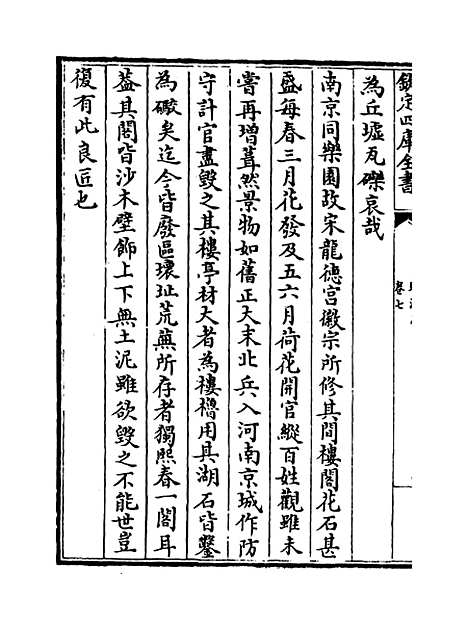 欽定四庫全書
卷七
為丘墟瓦礫哀哉
南京同樂園故宋龍德宮徽宗所修其間樓閣花石甚
盛每春三月花發及五六月荷花開官縱百姓觀雖未
嘗再增葺然景物如舊正大末北兵入河南京城作防
守計官盡毀之其樓亭材大者為樓櫓用其湖石皆鑿
為礮矣迄今皆廢區壞址荒蕪所存者獨熙春一閣耳
葢其閣皆沙木壁飾上下無土泥雖欲毀之不能世豈
復有此良匠也